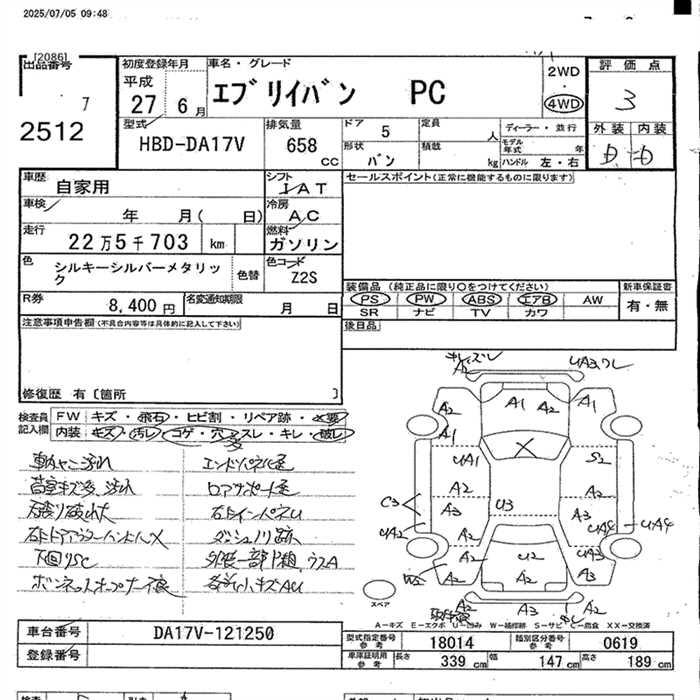 2025/07/05 09:48
[2086]
出品番号
7
2512
初度登録年月
平成
27 6月
車名・グレード
エブリイバン PC
2WD
・
4WD
評価点
3
外装 内装
D D
型式
HBD-DA17V
排気量
658 cc
ドア 5
定員 人
形状 バン
積載 kg
ディーラー・並行
モデル年式 年
ハンドル 左・右
車歴 自家用
シフト IAT
車検 年 月( 日)
冷房 AC
走行 22万5千703 km
燃料 ガソリン
色 シルキーシルバーメタリック
色替
色コード Z2S
R券 8,400円
名変通知期限 月 日
セールスポイント(正常に機能するものに限ります)
装備品(純正品に限り○をつけてください)
PS PW ABS エアB AW
SR ナビ TV カワ
新車保証書
有・無
後日品
注意事項申告欄(不具合内容等は具体的に記入して下さい)
修復歴 有〔箇所 〕
検査員記入欄
FW キズ・飛石・ヒビ割・リペア跡・×要
内装 キズ・汚レ・コゲ・穴・スレ・キレ・破レ
多
車内ヤニ汚れ
荷室キズ多、汚れ
下回りSC
エンドパネル歪
ロアサポート歪
右インパネU
ダッシュノリ跡
各所小キズAU
A2
UA3
A2
A1
A2
A1
A1
UA1
S2
A2
A2
C3
A3
U3
A3
UA2
UA4
UA4
A2
A2
UA3
W2
A2
U2
A2
A2
A2
A3
A2
スペア
A-キズ E-エクボ U-凹み W-補修跡 S-サビ C-腐食 XX-交換済
車台番号 DA17V-121250
登録番号
型式指定番号 参考 18014
類別区分番号 参考 0619
車庫証明用 参考 長さ 339cm 幅 147cm 高さ 189cm